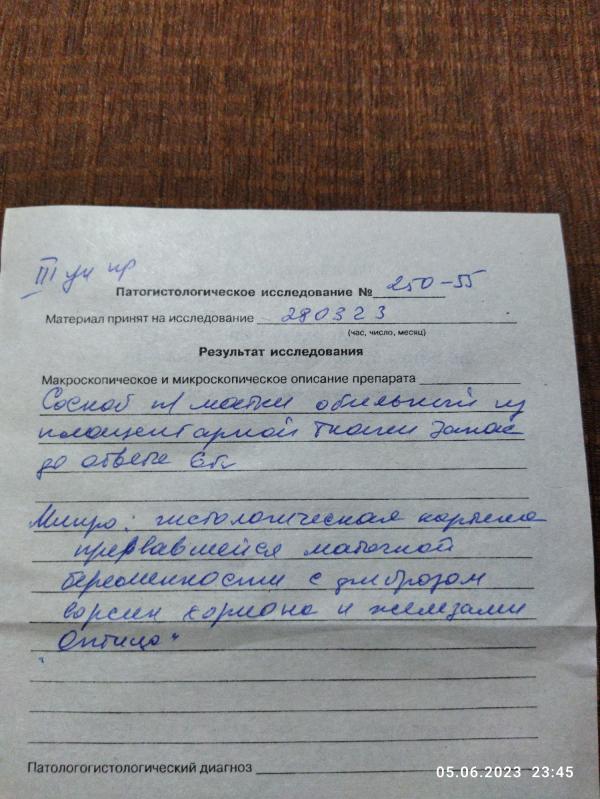 III ун пр
Патогистологическое исследование № 250-55
Материал принят на исследование 280323
(час, число, месяц)
Результат исследования
Макроскопическое и микроскопическое описание препарата
Соскоб п/ матки обильный из
плацентарной ткани Запас
до ответа
Микро: гистологическая картина
прервавшейся маточной
беременности с фиброзом
ворсин хориона и железами
"Опитца"
Патологогистологический диагноз
05.06.2023 23:45